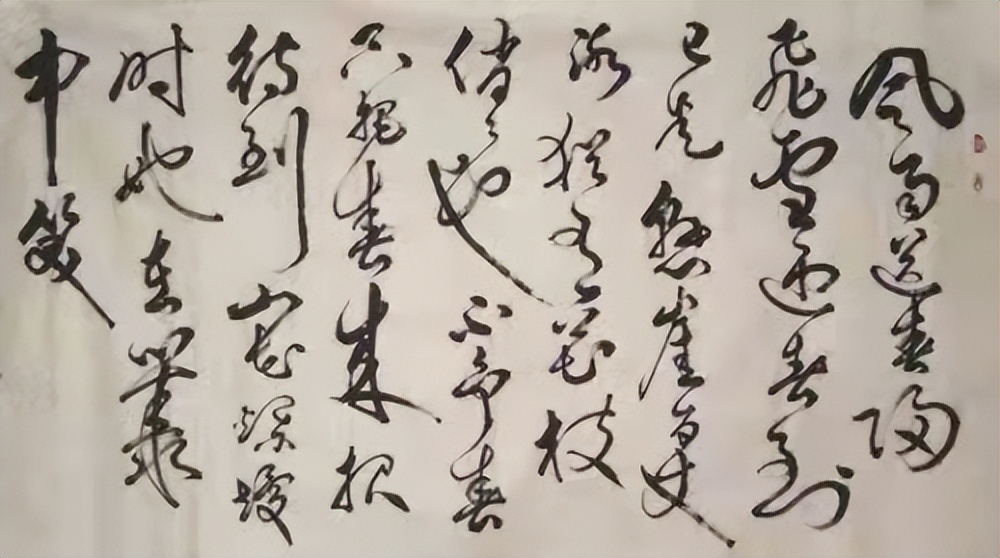 风雨送春归
飛雪迎春到
已是懸崖百丈
冰猶有花枝
俏〻也不争春
只把春来报
待到山花烂熳
时她在叢
中笑